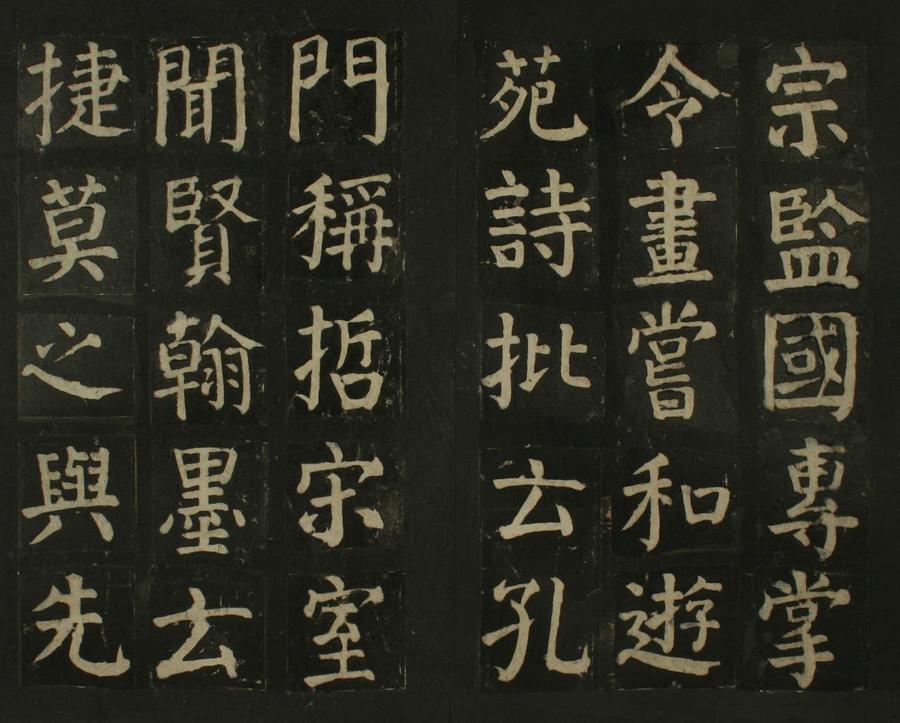 宗監國專掌
令畫嘗和遊
苑詩批云孔
門稱哲宋室
聞賢翰墨云
捷莫之與先